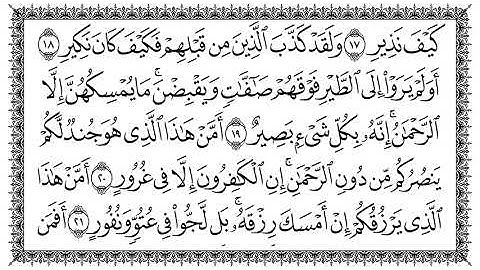 كَيْفَ نَذِيرِ ١٧ وَلَقَدْ كَذَّبَ الَّذِينَ مِن قَبْلِهِمْ فَكَيْفَ كَانَ نَكِيرِ ١٨
أَوَلَمْ يَرَوْا إِلَى الطَّيْرِ فَوْقَهُمْ صَافَّاتٍ وَيَقْبِضْنَ ۚ مَا يُمْسِكُهُنَّ إِلَّا
الرَّحْمَٰنُ ۚ إِنَّهُ بِكُلِّ شَيْءٍ بَصِيرٌ ١٩ أَمَّنْ هَٰذَا الَّذِي هُوَ جُندٌ لَّكُمْ
يَنصُرُكُم مِّن دُونِ الرَّحْمَٰنِ ۚ إِنِ الْكَافِرُونَ إِلَّا فِي غُرُورٍ ٢٠ أَمَّنْ هَٰذَا
الَّذِي يَرْزُقُكُمْ إِنْ أَمْسَكَ رِزْقَهُ ۚ بَل لَّجُّوا فِي عُتُوٍّ وَنُفُورٍ ٢١ أَفَمَن